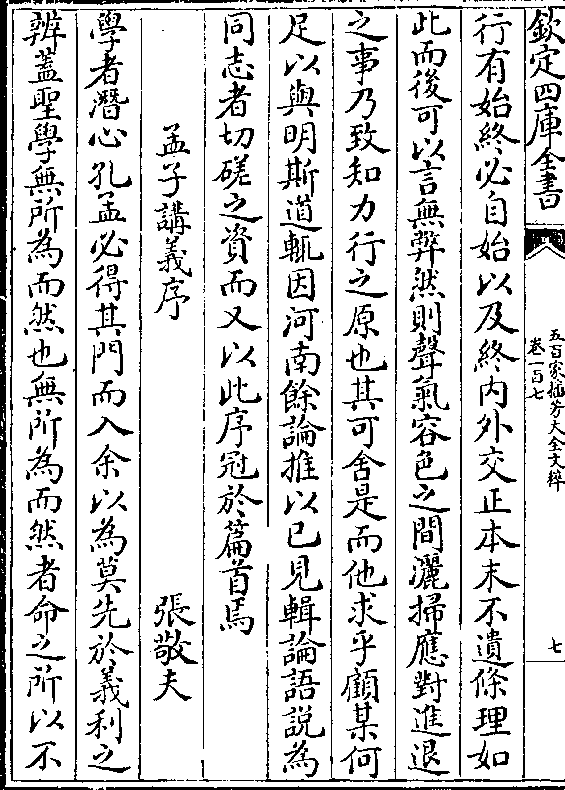 欽定四庫全書
五百家播芳大全文粹
卷一百七
七
行有始終必自始以及終内外交正本末不遺條理如
此而後可以言無弊然則聲氣容色之間灑掃應對進退
之事乃致知力行之原也其可舍是而他求乎顧某何
足以與明斯道輒因河南餘論推以已見輯論語説為
同志者切磋之資而又以此序冠於篇首焉
孟子講義序
張敬夫
學者潛心孔孟必得其門而入余以為莫先於義利之
辨蓋聖學無所為而然也無所為而然者命之所以不